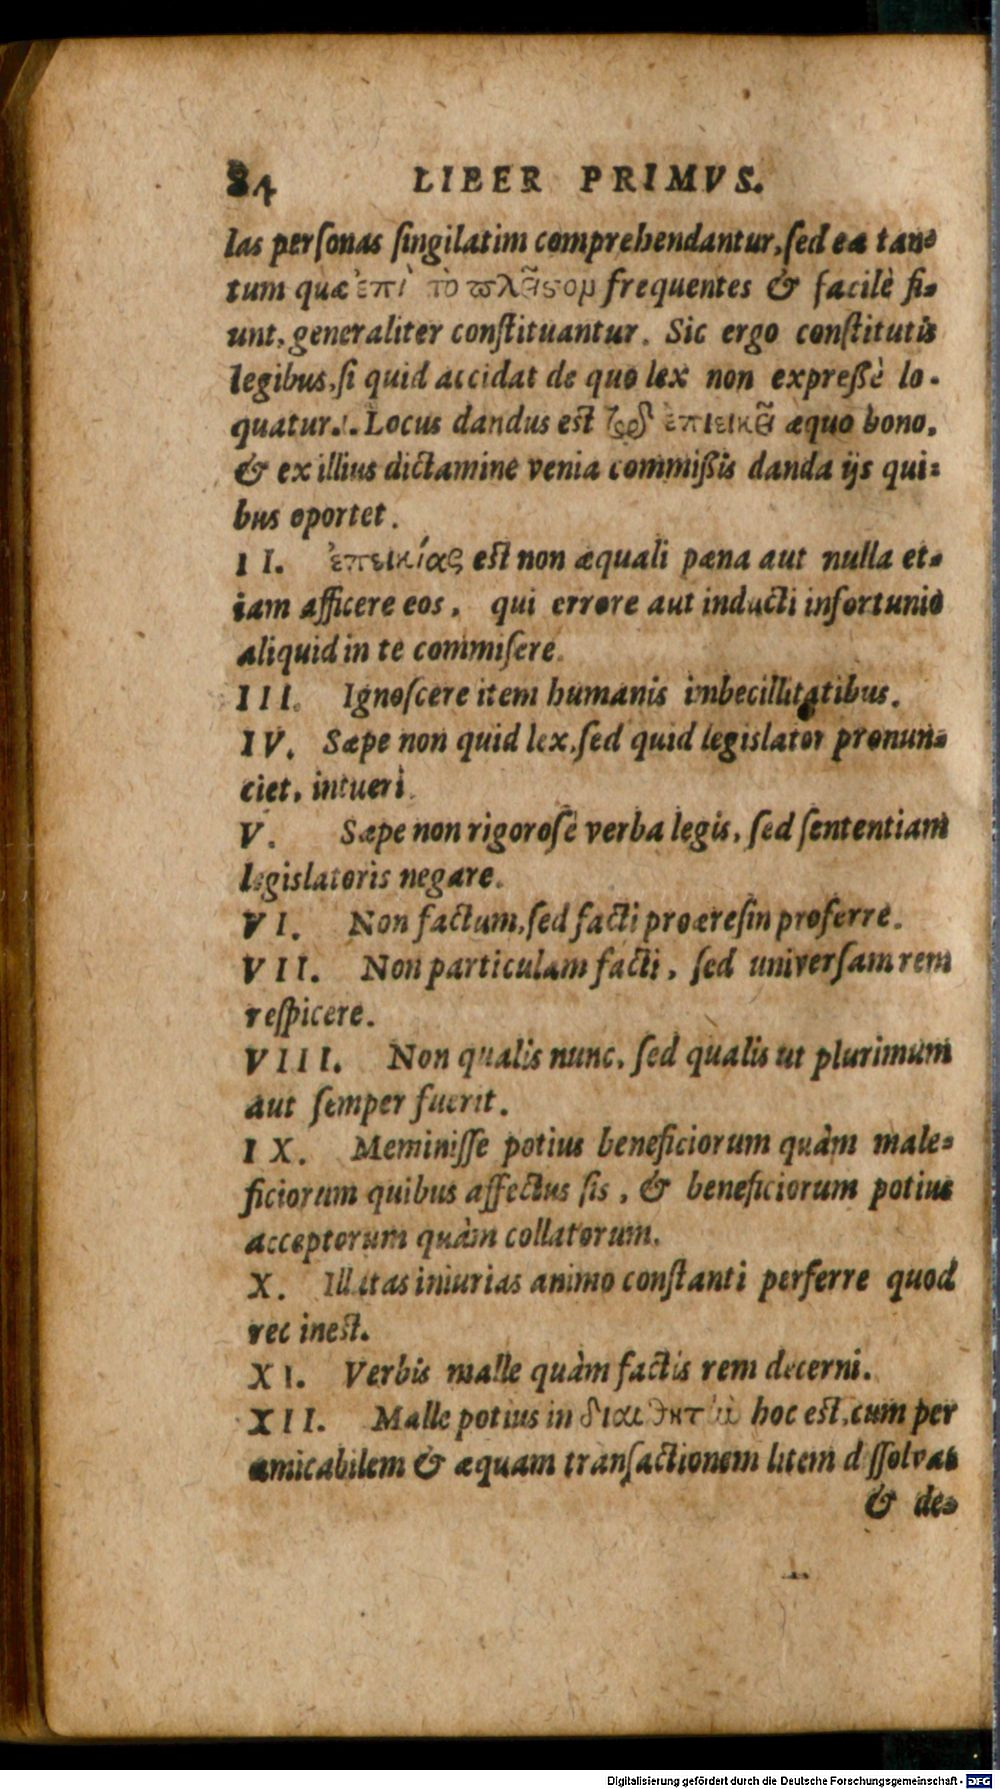 84 LIBER PRIMVS.
las perſonas ſingilatim comprehendantur, ſed ea tan-
tum quæ ἐπὶ τὸ frequentes & facilè fi-
unt, generaliter conſtituantur. Sic ergo conſtitutis
legibus, ſi quid accidat de quo lex non expreſſè lo-
quatur. Locus dandus est æquo bono,
& ex illius dictamine venia commiſsis danda ijs qui-
bus oportet.
II. ἐπεικίας est non æquali pœna aut nulla et-
iam afficere eos, qui errore aut inducti infortunio
aliquid in te commiſere.
III. Ignoſcere item humanis imbecillitatibus.
IV. Sæpe non quid lex, ſed quid legislator pronun-
ciet, intueri.
V. Sæpe non rigoroſè verba legis, ſed ſententiam
legislatoris negare.
VI. Non factum, ſed facti proæreſin proferre.
VII. Non particulam facti, ſed univerſam rem
reſpicere.
VIII. Non qualis nunc, ſed qualis ut plurimum
aut ſemper fuerit.
IX. Meminiſſe potius beneficiorum quàm male-
ficiorum quibus affectus ſis, & beneficiorum potius
acceptorum quàm collatorum.
X. Illatas iniurias animo conſtanti perferre quod
rec inest.
XI. Verbis malle quàm factis rem decerni.
XII. Malle potius in hoc est, cum per
amicabilem & æquam tranſactionem litem diſſolvas
& de-
Digitalisierung gefördert durch die Deutsche Forschungsgemeinschaft - DFG